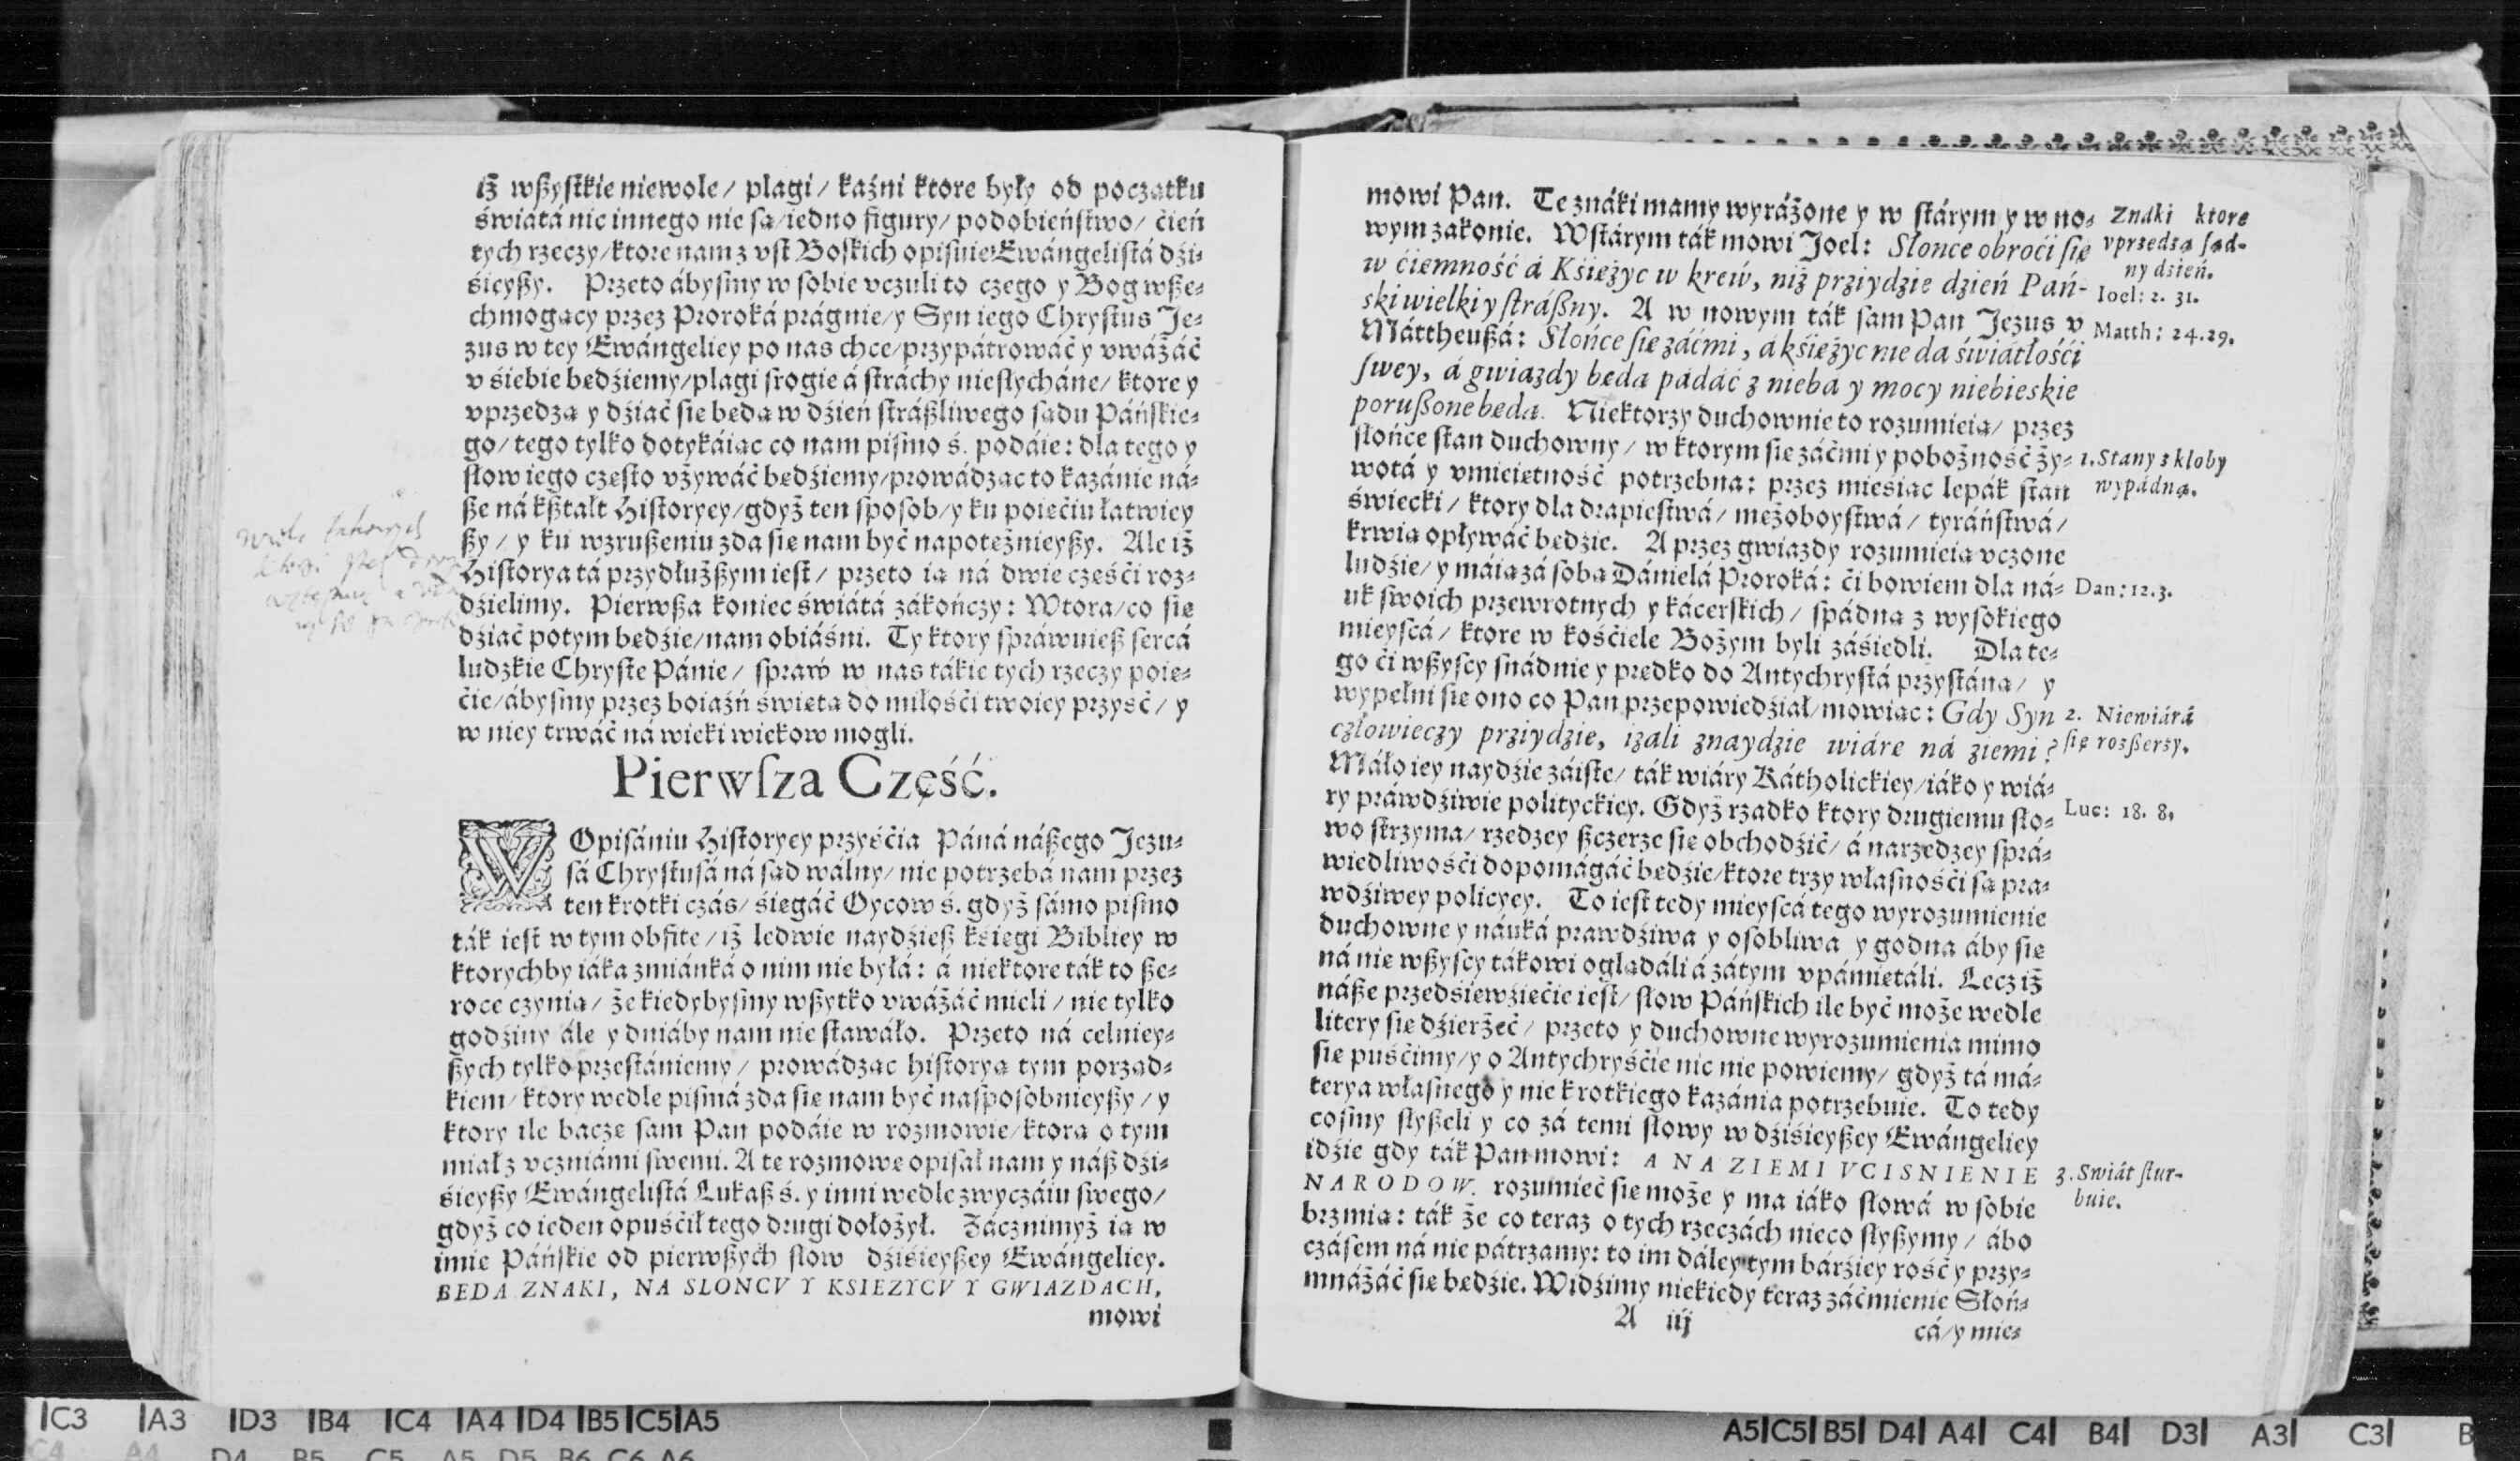 iż wßyſtkie niewole/ plagi/ kaźni ktore były od początku
świátá nic innego nie ſą/iedno figury/ podobieńſtwo/ ćień
tych rzeczy/ktore nam z vſt Boſkich opiſuie Ewángeliſtá dźi⸗
śieyßy. Przeto ábyſmy w ſobie vczuli to czego y Bog wße⸗
chmogący przez Proroká prágnie/y Syn iego Chryſtus Je⸗
zus w tey Ewángeliey po nas chce/przypátrowáć y vwáżáć
v śiebie będźiemy/plagi ſrogie á ſtráchy nieſłycháne/ ktore y
vprzedzą y dźiać ſie będą w dźień ſtráßliwego ſądu Páńſkie⸗
go/ tego tylko dotykáiąc co nam piſmo ś. podáie: dla tego y
ſłow iego często vżywáć będźiemy/prowádząc to kazánie ná⸗
ße ná kßtałt Hiſtoryey/gdyż ten ſpoſob/y ku poięćiu łatwiey
ßy/ y ku wzrußeniu zda ſie nam być napotężnieyßy. Ale iż
Hiſtorya tá przydłużßym ieſt/ przeto ią ná dwie częśći roz⸗
dźielimy. Pierwßa koniec świátá zákończy: Wtora/co ſię
dźiać potym będźie/nam obiáśni. Ty ktory ſpráwuieß ſercá
ludzkie Chryſte Pánie/ ſpraw w nas tákie tych rzeczy poię⸗
ćie/ábyſmy przez boiaźń świętą do miłośći twoiey przyść/ y
w niey trwáć ná wieki wiekow mogli.
Pierwſza Część.
W Opiſániu Hiſtoryey przyśćia Páná náßego Jezu⸗
ſá Chryſtuſá ná ſąd wálny/ nie potrzebá nam przez
ten krotki czás/ śięgáć Oycow ś. gdyż ſámo piſmo
ták ieſt w tym obfite/ iż ledwie naydźieß kśięgi Bibliey w
ktorychby iáka zmiánká o nim nie byłá: á niektore ták to ße⸗
roce czynią/ że kiedybyſmy wßytko vwáżáć mieli/ nie tylko
godźiny ále y dniáby nam nie ſtawáło. Przeto ná celniey⸗
ßych tylko przeſtániemy/ prowádząc hiſtoryą tym porząd⸗
kiem/ ktory wedle piſmá zda ſie nam być naſpoſobnieyßy/ y
ktory ile baczę ſam Pan podáie w rozmowie/ktorą o tym
miał z vczniámi ſwemi. A tę rozmowę opiſał nam y náß dźi⸗
śieyßy Ewángeliſtá Lukaß ś. y inni wedle zwyczáiu ſwego/
gdyż co ieden opuśćił tego drugi dołożył. Zácznimyż ią w
imię Páńſkie od pierwßych ſłow dźiśieyßey Ewángeliey.
BEDA ZNAKI, NA SLONCV Y KSIEZYCV Y GWIAZDACH,
mowi
mowi Pan. Te znáki mamy wyráżone y w ſtárym y w no⸗
wym zakonie. W ſtárym ták mowi Joel: Słonce obroći ſię
w ćiemność á Kśiężyc w kreẃ, niż prziydzie dzień Pań-
ski wielki y ſtráßny. A w nowym ták ſam Pan Jezus v
Máttheußá: Słońce ſie záćmi, á kśiężyc nie da świátłośći
ſwey, á gwiazdy będą pádáć z nieba y mocy niebieskie
porußone będą. Niektorzy duchownie to rozumieią/ przez
ſłońce ſtan duchowny/ w ktorym ſie záćmi y pobożność ży⸗
wotá y vmieiętność potrzebna: przez mieśiąc lepák ſtan
świecki/ ktory dla drapieſtwá/ mężoboyſtwá/ tyráńſtwá/
krwią opływáć będźie. A przez gwiazdy rozumieią vczone
ludźie/ y máią zá ſobą Dánielá Proroká: ći bowiem dla ná⸗
uk ſwoich przewrotnych y kácerſkich/ ſpádną z wyſokiego
mieyſcá/ ktore w kośćiele Bożym byli záśiedli. Dla te⸗
go ći wßyſcy ſnádnie y prędko do Antychryſtá przyſtáną/ y
wypełni ſie ono co Pan przepowiedźiał/mowiąc: Gdy Syn
człowieczy prziydzie, izali znaydzie wiárę ná ziemi?
Máło iey naydźie záiſte/ ták wiáry Kátholickiey/iáko y wiá⸗
ry práwdźiwie polityckiey. Gdyż rzadko ktory drugiemu ſło⸗
wo ſtrzyma/ rzedzey ßczerze ſie obchodźić/ á narzedzey ſprá⸗
wiedliwośći dopomágáć będźie/ktore trzy właſnośći ſą pra⸗
wdźiwey policyey. To ieſt tedy mieyſcá tego wyrozumienie
duchowne y náuká prawdźiwa y oſobliwa y godna áby ſię
ná nię wßyſcy tákowi oglądáli á zátym vpámiętáli. Lecz iż
náße przedśięwźięćie ieſt/ ſłow Páńſkich ile być może wedle
litery ſie dźierżeć/ przeto y duchowne wyrozumienia mimo
ſie puśćimy/y o Antychryśćie nic nie powiemy/ gdyż tá má⸗
terya właſnego y nie krotkiego kazánia potrzebuie. To tedy
coſmy ſłyßeli y co zá temi ſłowy w dźiśieyßey Ewángeliey
idźie gdy ták Pan mowi: A NA ZIEMI VCISNIENIE
NARODOW. rozumieć ſie może y ma iáko ſłowá w ſobie
brzmią: ták że co teraz o tych rzeczách nieco ſłyßymy/ ábo
czáſem ná nie pátrzamy: to im dáley tym bárźiey rość y przy⸗
mnáżáć ſie będźie. Widźimy niekiedy teraz záćmienie Słoń⸗
A iij
cá/y mie⸗
Znáki ktore
vprzedzą ſąd-
ny dzień.
Ioel: 2. 31.
Matth: 24.29.
1. Stany z kloby
wypádną.
Dan: 12.3.
2. Niewiárá
ſię rozßerzy.
Luc: 18. 8.
3. Swiát ſtur-
buie.
C3 A3 D3 B4 C4 A4 D4 B5 C5 A5
A5 C5 B5 D4 A4 C4 B4 D3 A3 C3 B
C4 A4 D4 B5 C5 A5 D5 B6 C6 A6